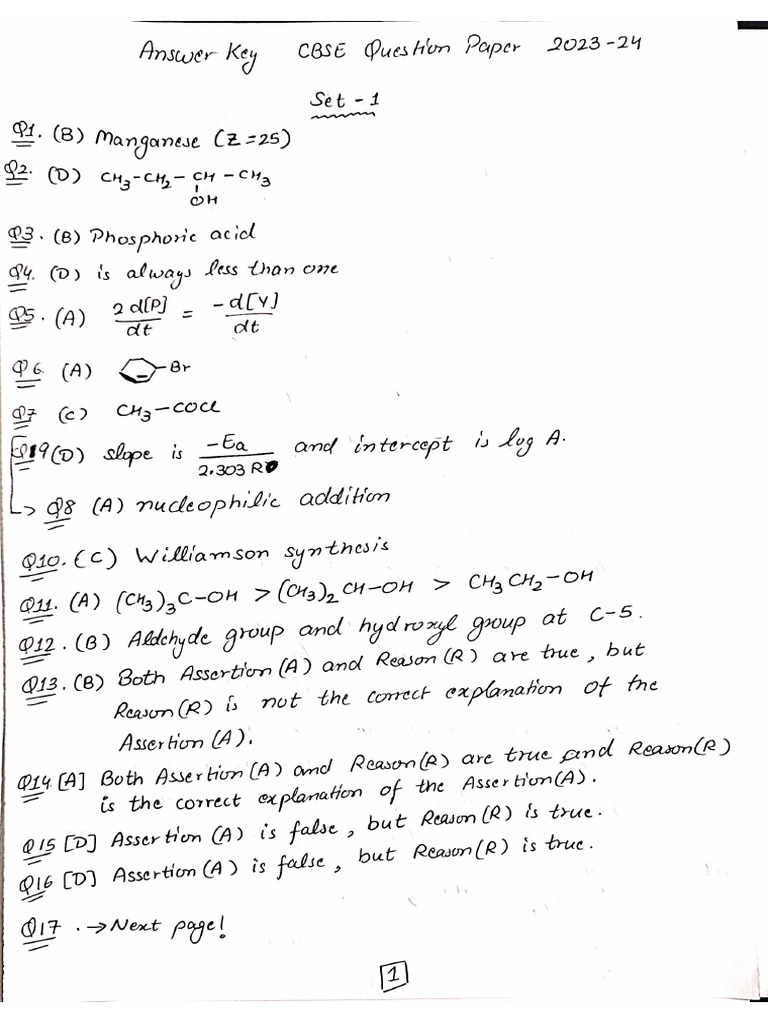 Answer Key CBSE Question Paper 2023-24
Set - 1
Q1. (B) Manganese (Z=25)
Q2. (D) CH3-CH2-CH-CH3
OH
Q3. (B) Phosphoric acid
Q4. (D) is always less than one
Q5. (A) 2d[P]/dt = -d[Y]/dt
Q6. (A) -Br
Q7 (C) CH3-COCl
Q9 (D) slope is -Ea/2.303 R and intercept is log A.
Q8 (A) nucleophilic addition
Q10. (C) Williamson synthesis
Q11. (A) (CH3)3C-OH > (CH3)2CH-OH > CH3CH2-OH
Q12. (B) Aldehyde group and hydroxyl group at C-5.
Q13. (B) Both Assertion (A) and Reason (R) are true, but
Reason (R) is not the correct explanation of the
Assertion (A).
Q14 [A] Both Assertion (A) and Reason (R) are true and Reason (R)
is the correct explanation of the Assertion (A).
Q15 [D] Assertion (A) is false, but Reason (R) is true.
Q16 [D] Assertion (A) is false, but Reason (R) is true.
Q17 . → Next page!
1